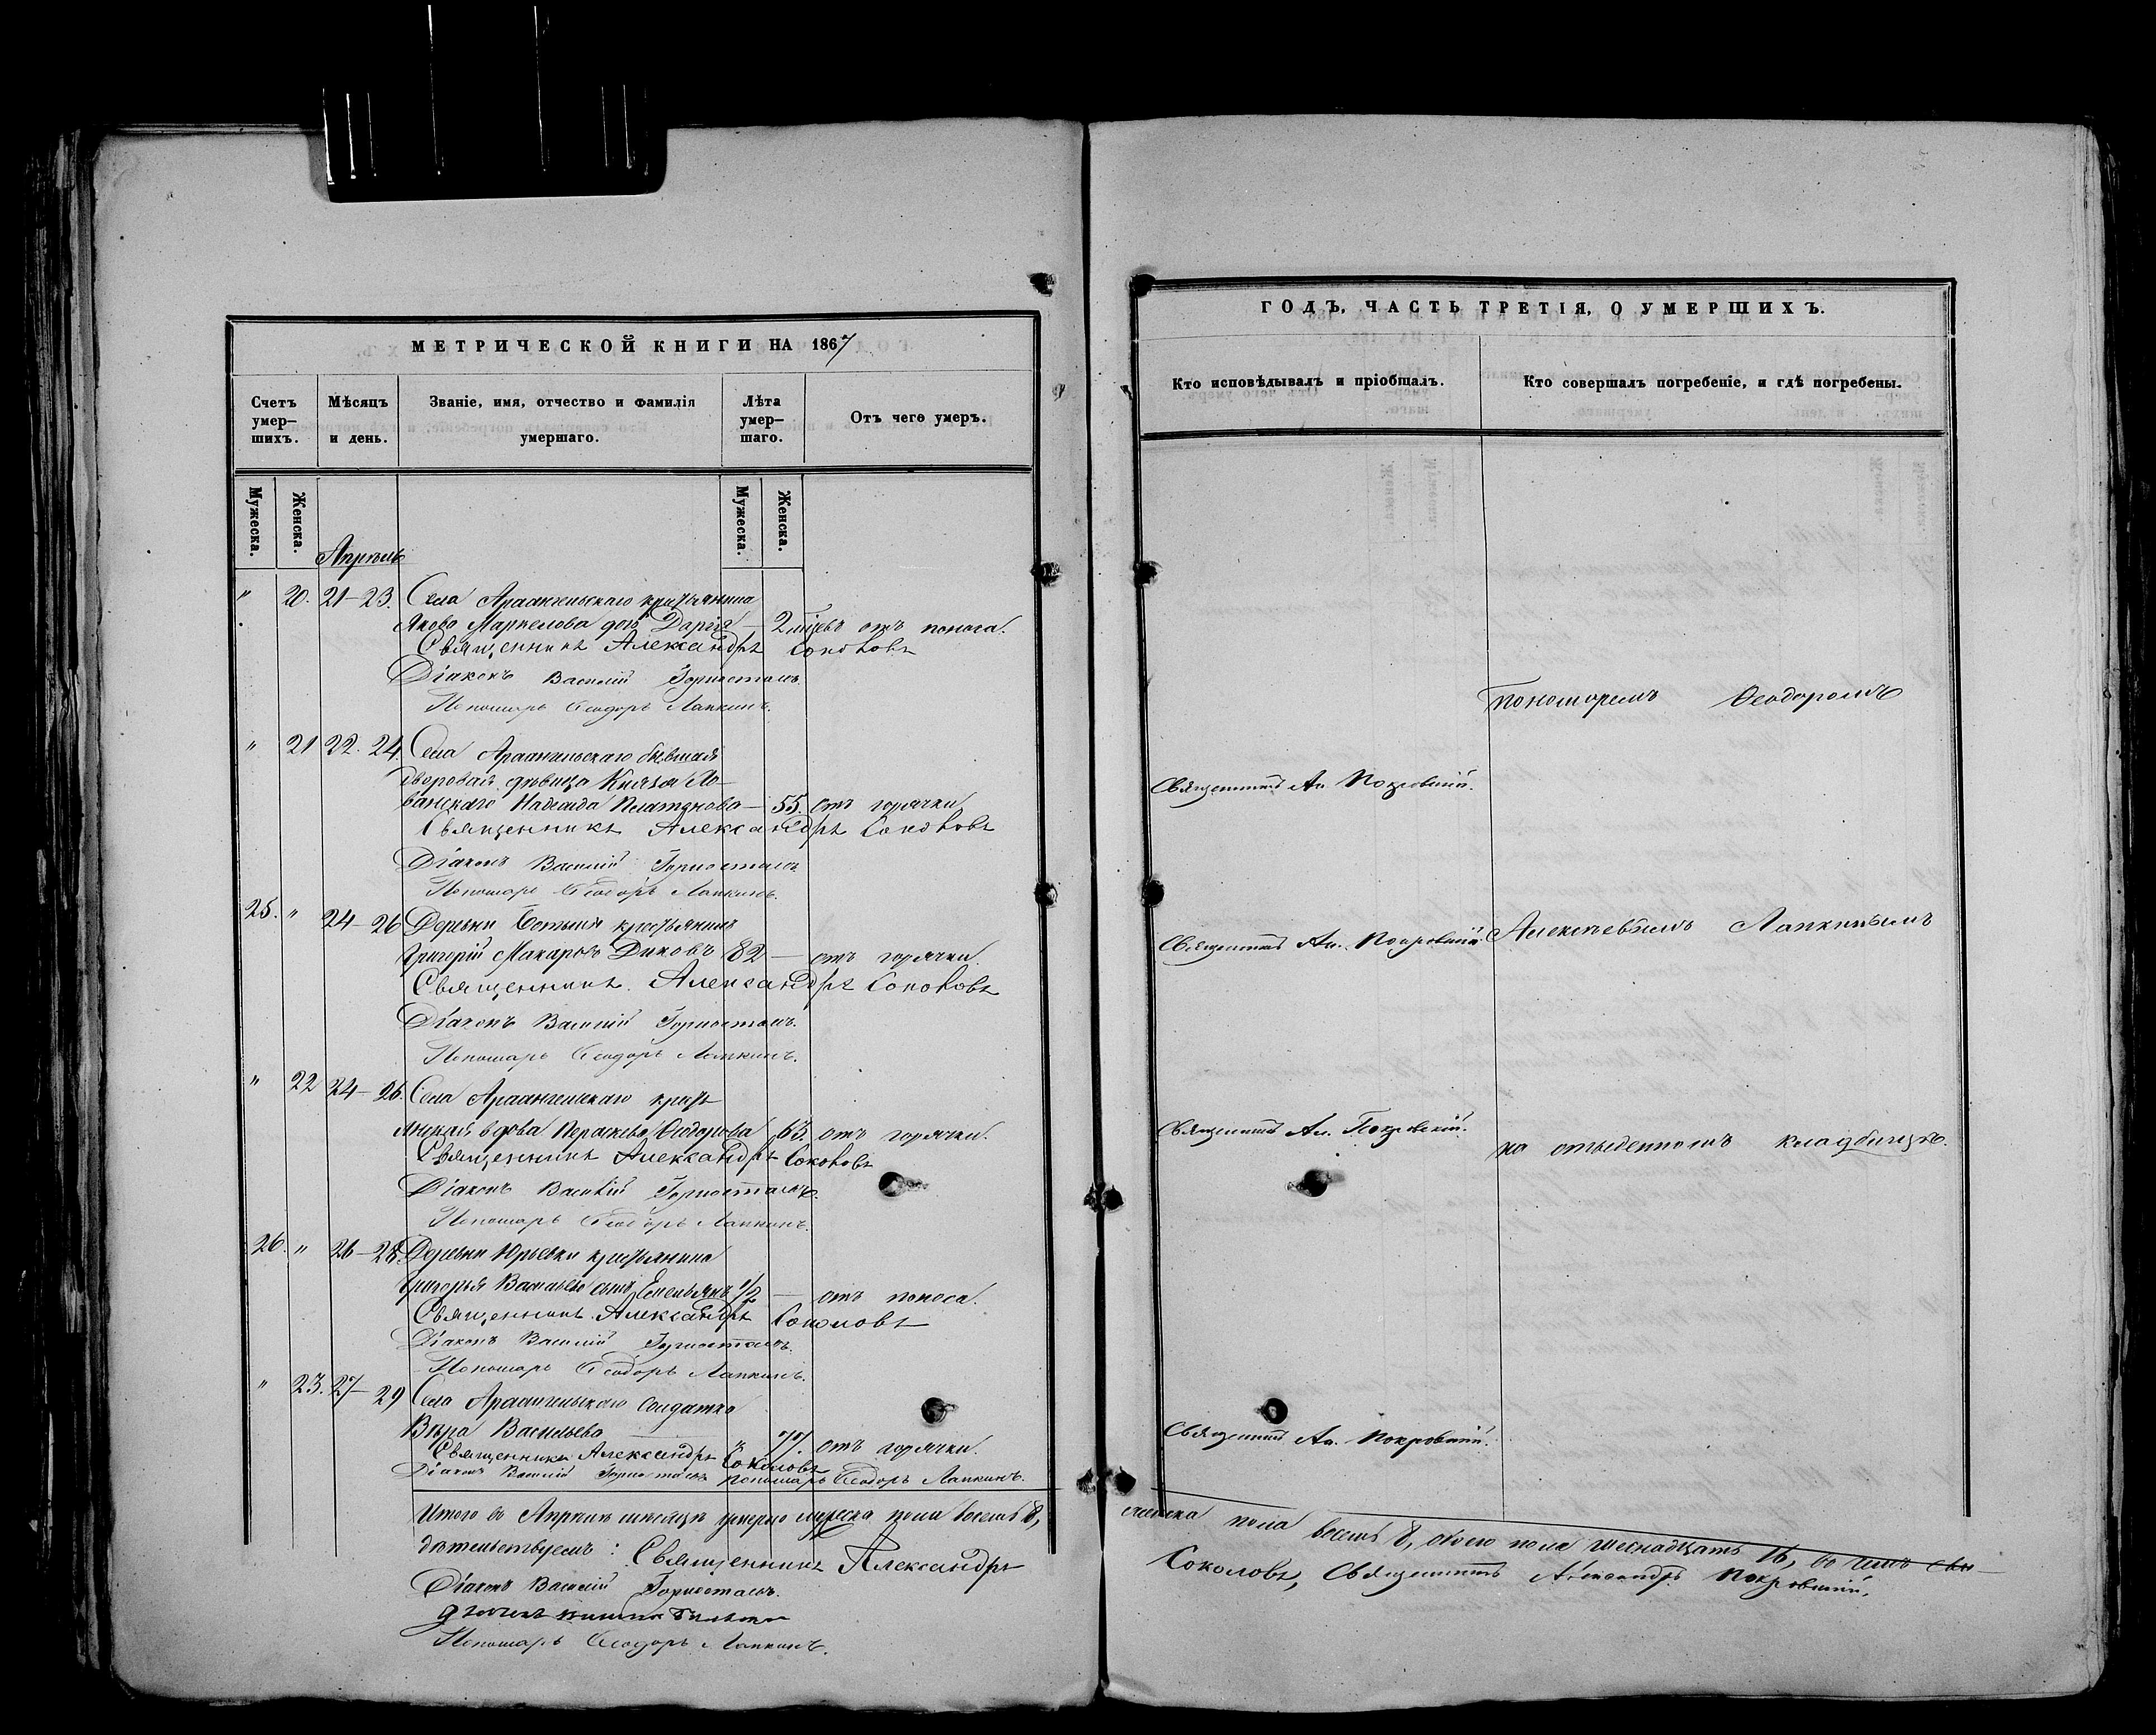 МЕТРИЧЕСКОЙ КНИГИ НА 1867
Счетъ умер-шихъ.
Мѣсяцъ и день.
Званіе, имя, отчество и фамилія умершаго.
Лѣта умер-шаго.
Отъ чего умеръ.
Мужеска.
Женска.
Мужеска.
Женска.
Апрѣль
" 20. 21-23. Села Архангельскаго крестьянина
Якова Маркелова дочь Дарія — 2 мѣсц. отъ поноса.
Священникъ Александръ Соколовъ
Діаконъ Василій Горностаевъ.
Пономарь Ѳеодоръ Лапкинъ.
" 21 22. 24. Села Архангельскаго бывшая
дворовая дѣвица Князя Ло-
банскаго Надежда Платонова — 55. отъ горячки.
Священникъ Александръ Соколовъ
Діаконъ Василій Горностаевъ
Пономарь Ѳеодоръ Лапкинъ.
25. " 24-26 Деревни крестьянинъ
Григорій Макаровъ Диковъ 82 — отъ горячки.
Священникъ Александръ Соколовъ
Діаконъ Василій Горностаевъ.
Пономарь Ѳеодоръ Лапкинъ.
" 22 24-26. Села Архангельскаго кресть
янская вдова Параскева Ѳеодорова 63. отъ горячки.
Священникъ Александръ Соколовъ
Діаконъ Василій Горностаевъ.
Пономарь Ѳеодоръ Лапкинъ.
26. " 26-28. Деревни Юрьевки крестьянина
Григорья Васильева сынъ Емельянъ 1/2 — отъ поноса.
Священникъ Александръ Соколовъ
Діаконъ Василій Горностаевъ.
Пономарь Ѳеодоръ Лапкинъ.
" 23. 27-29 Села Архангельскаго Солдатка
Вѣра Васильева — " 77. отъ горячки.
Священникъ Александръ Соколовъ
Діаконъ Василій Горностаевъ Пономарь Ѳеодоръ Лапкинъ.
Итого въ Апрѣлѣ мѣсяцѣ умерло мужеска пола восемь 8,
дѣтельствуемъ: Священникъ Александръ
Діаконъ Василій Горностаевъ.
Пономарь Ѳеодоръ Лапкинъ.
ГОДЪ, ЧАСТЬ ТРЕТІЯ, О УМЕРШИХЪ.
Кто исповѣдывалъ и пріобщалъ.
Кто совершалъ погребеніе, и гдѣ погребены.
Пономаремъ Ѳеодоромъ
Священникъ Ал. Покровскій.
Священникъ Ал. Покровскій. Алексѣевымъ Лапкинымъ
Священникъ Ал. Покровскій.
на отведенномъ кладбищѣ.
Священникъ Ал. Покровскій.
женска пола восемь 8, обоего пола шестнадцать 16, въ чемъ сви-
Соколовъ, Священникъ Александръ Покровскій.